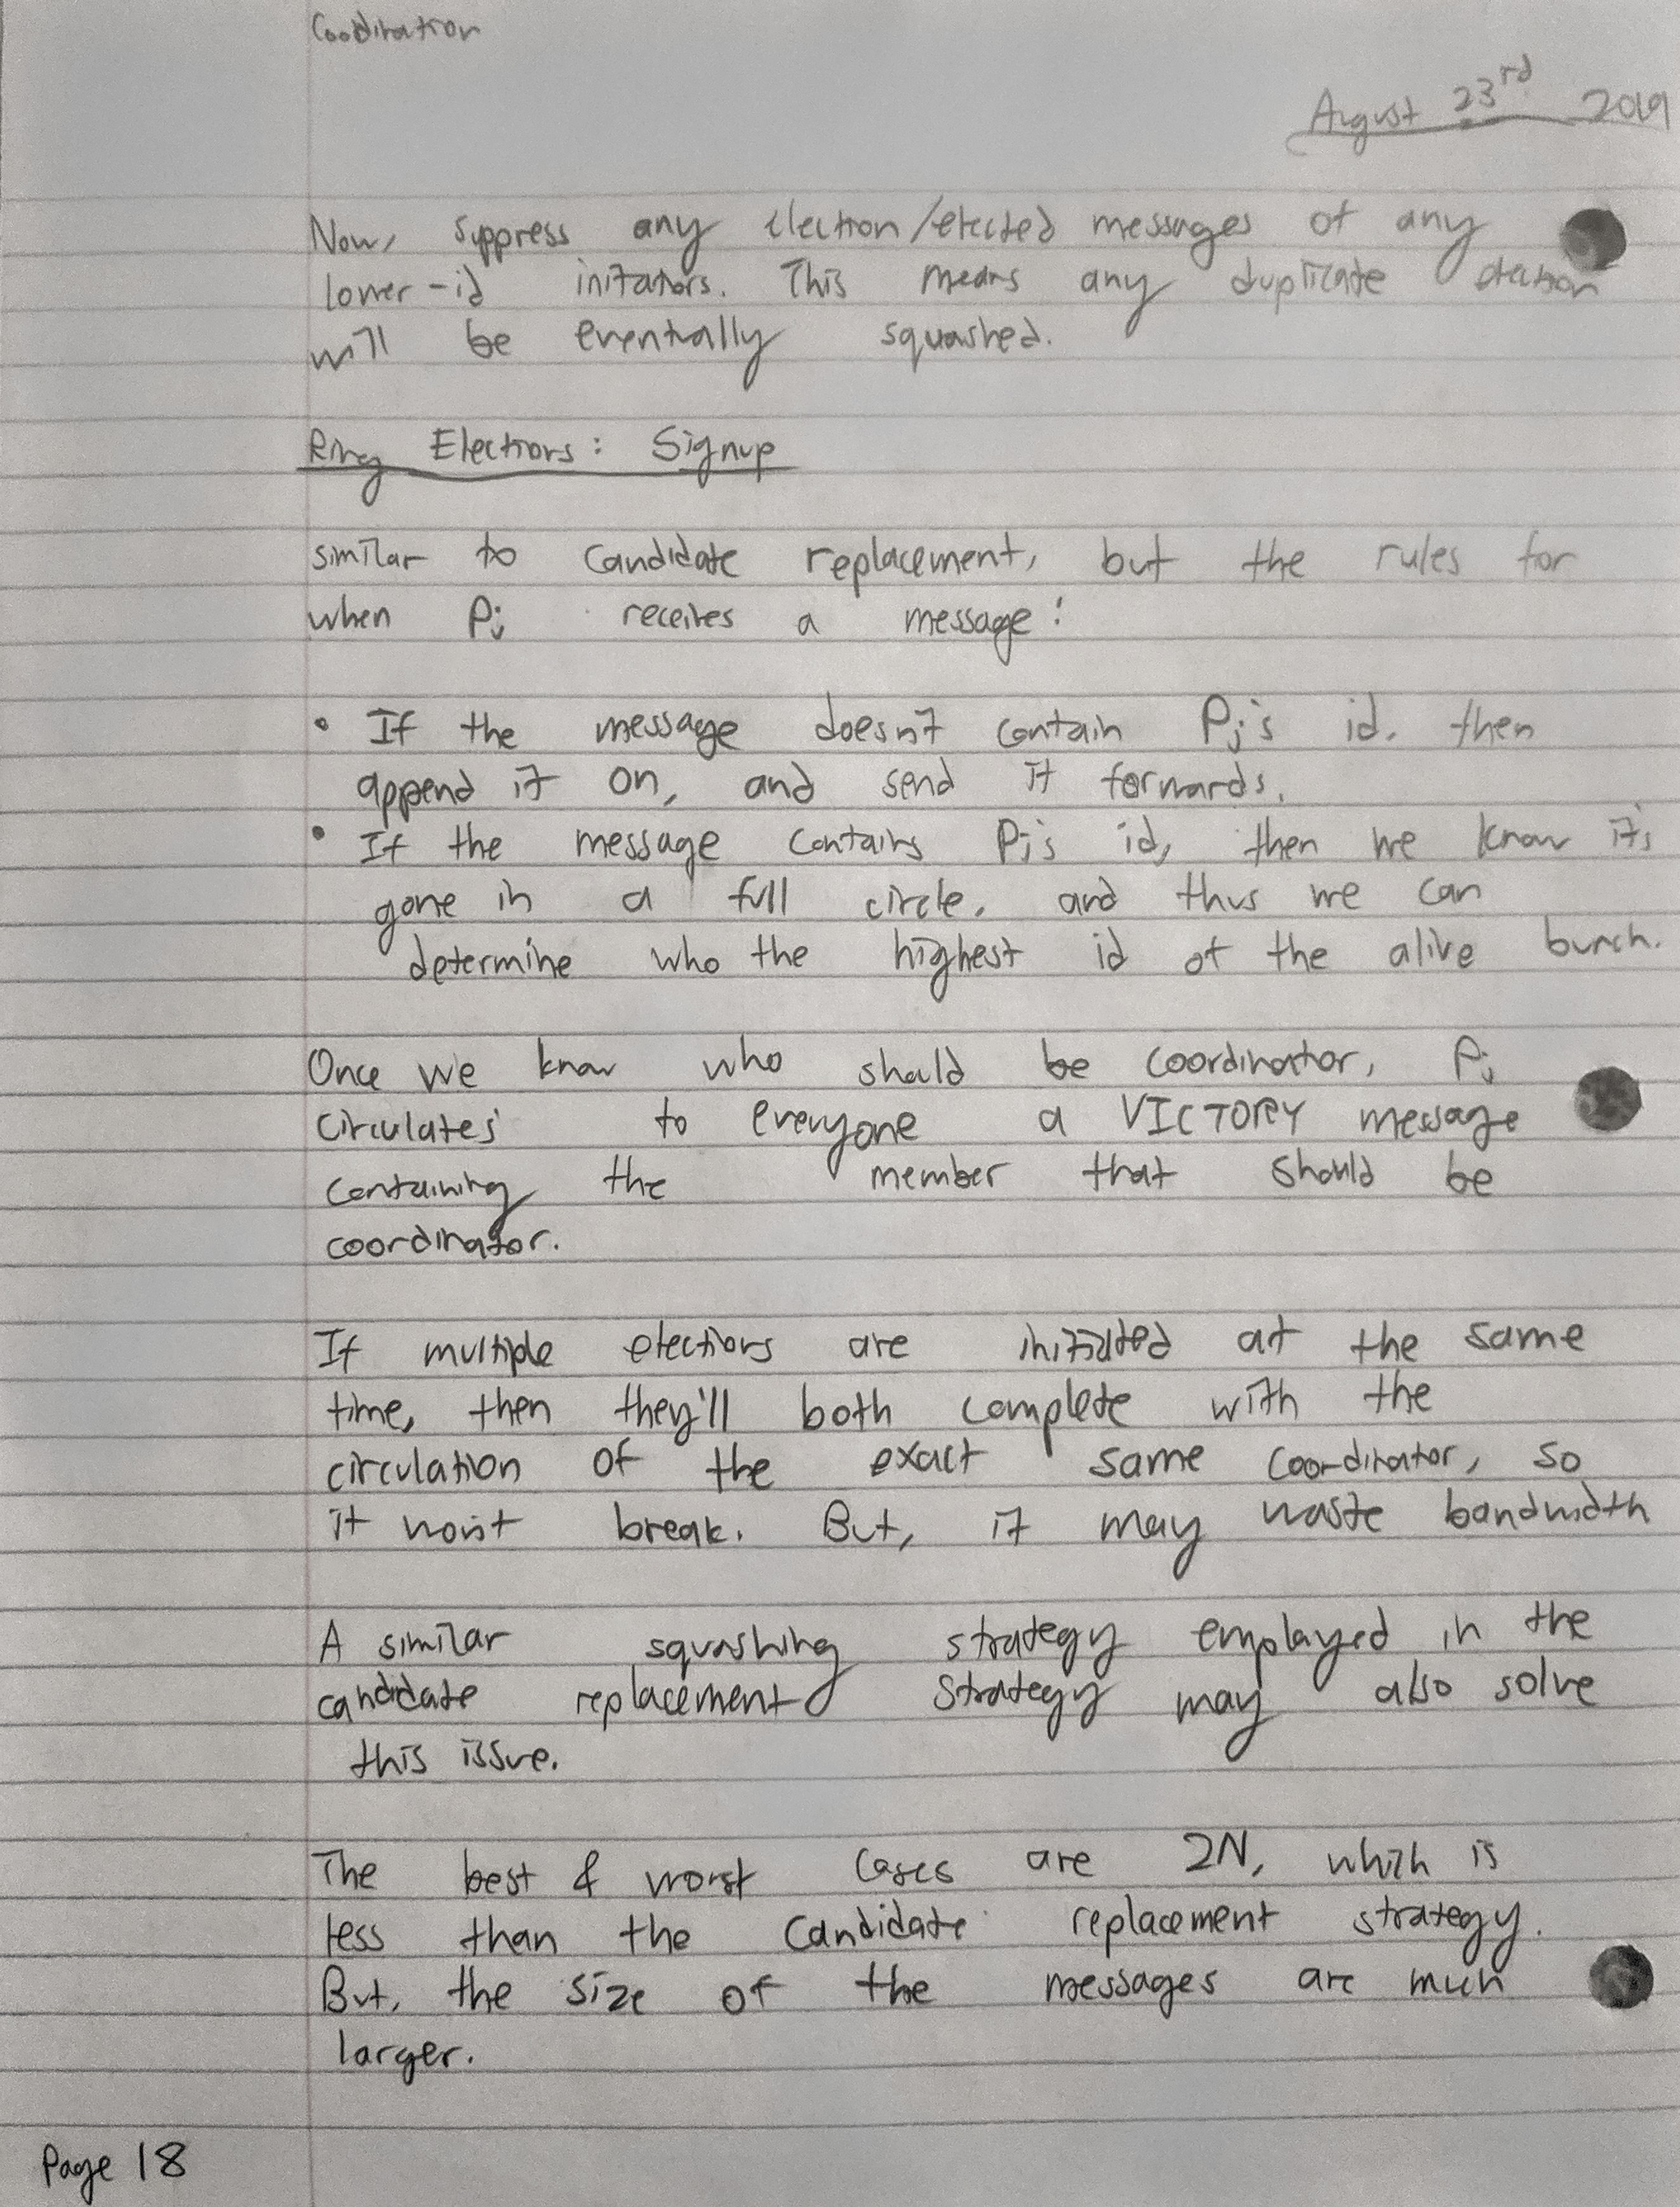 Coodination
August 23rd 2019
Now, suppress any election/elected messages of any
lower-id initators. This means any duplicate election
will be eventually squashed.
Ring Elections: Signup
similar to candidate replacement, but the rules for
when Pj receives a message:
• If the message doesn't contain Pj's id, then
append it on, and send it forwards.
• If the message contains Pj's id, then we know it's
gone in a full circle, and thus we can
determine who the highest id of the alive bunch.
Once we know who should be coordinator, Pj
circulates to everyone a VICTORY message
containing the member that should be
coordinator.
If multiple elections are initiated at the same
time, then they'll both complete with the
circulation of the exact same coordinator, so
it won't break. But, it may waste bandwidth
A similar squashing strategy employed in the
candidate replacement strategy may also solve
this issue.
The best & worst cases are 2N, which is
less than the candidate replacement strategy.
But, the size of the messages are much
larger.
Page 18